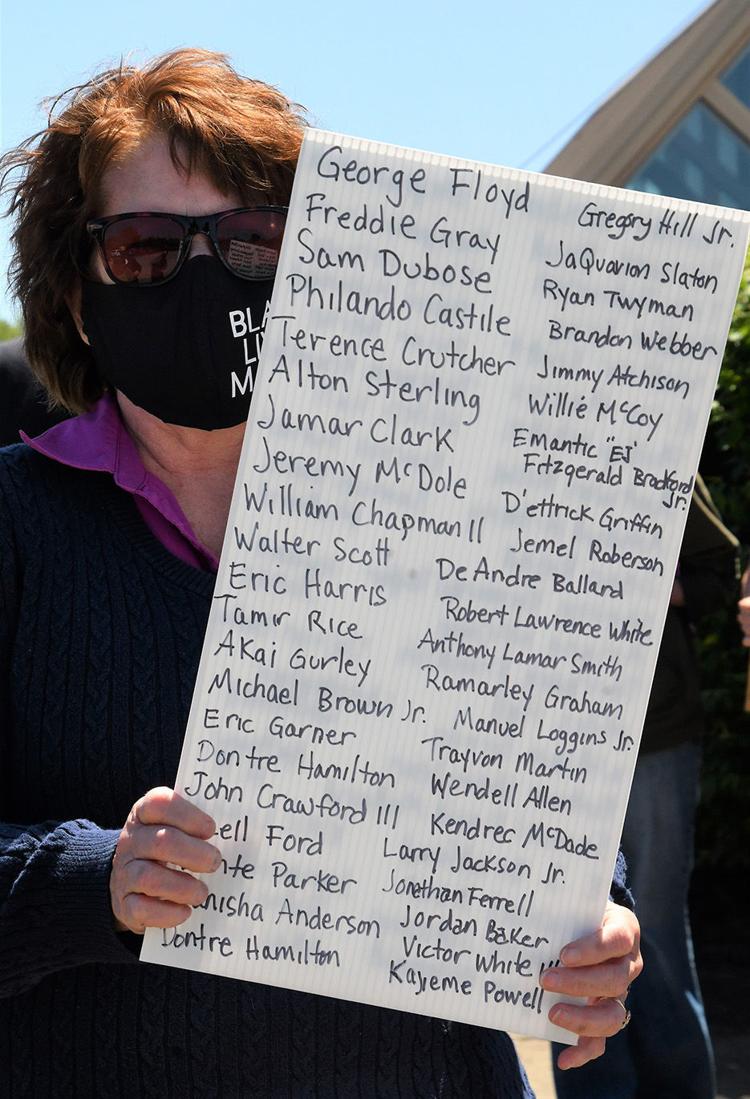 BLA
LI
M
George Floyd
Freddie Gray
Sam Dubose
Philando Castile
Terence Crutcher
Alton Sterling
Jamar Clark
Jeremy McDole
William Chapman II
Walter Scott
Eric Harris
Tamir Rice
AKai Gurley
Michael Brown Jr.
Eric Garner
Dontre Hamilton
John Crawford III
ell Ford
nte Parker
nisha Anderson
Dontre Hamilton
Gregory Hill Jr.
JaQuavion Slaton
Ryan Twyman
Brandon Webber
Jimmy Atchison
Willie McCoy
Emantic "EJ"
Fitzgerald Bradford
Jr.
D'ettrick Griffin
Jemel Roberson
DeAndre Ballard
Robert Lawrence White
Anthony Lamar Smith
Ramarley Graham
Manuel Loggins Jr.
Trayvon Martin
Wendell Allen
Kendrec McDade
Larry Jackson Jr.
Jonathan Ferrell
Jordan Baker
Victor White III
Kajieme Powell